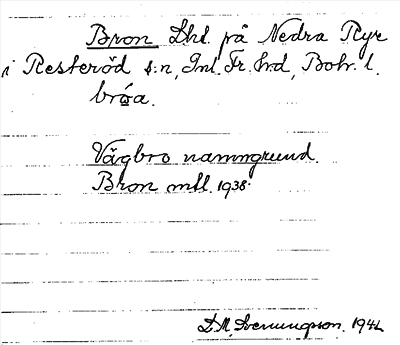 Bron Lhd. på Nedra Rye
i Resteröd s:n, Inl. Fr. hrd, Boh. l.
bróa.
Vägbro namngrund.
Bron mtl. 1938.
D. M. Svenungsson. 1942